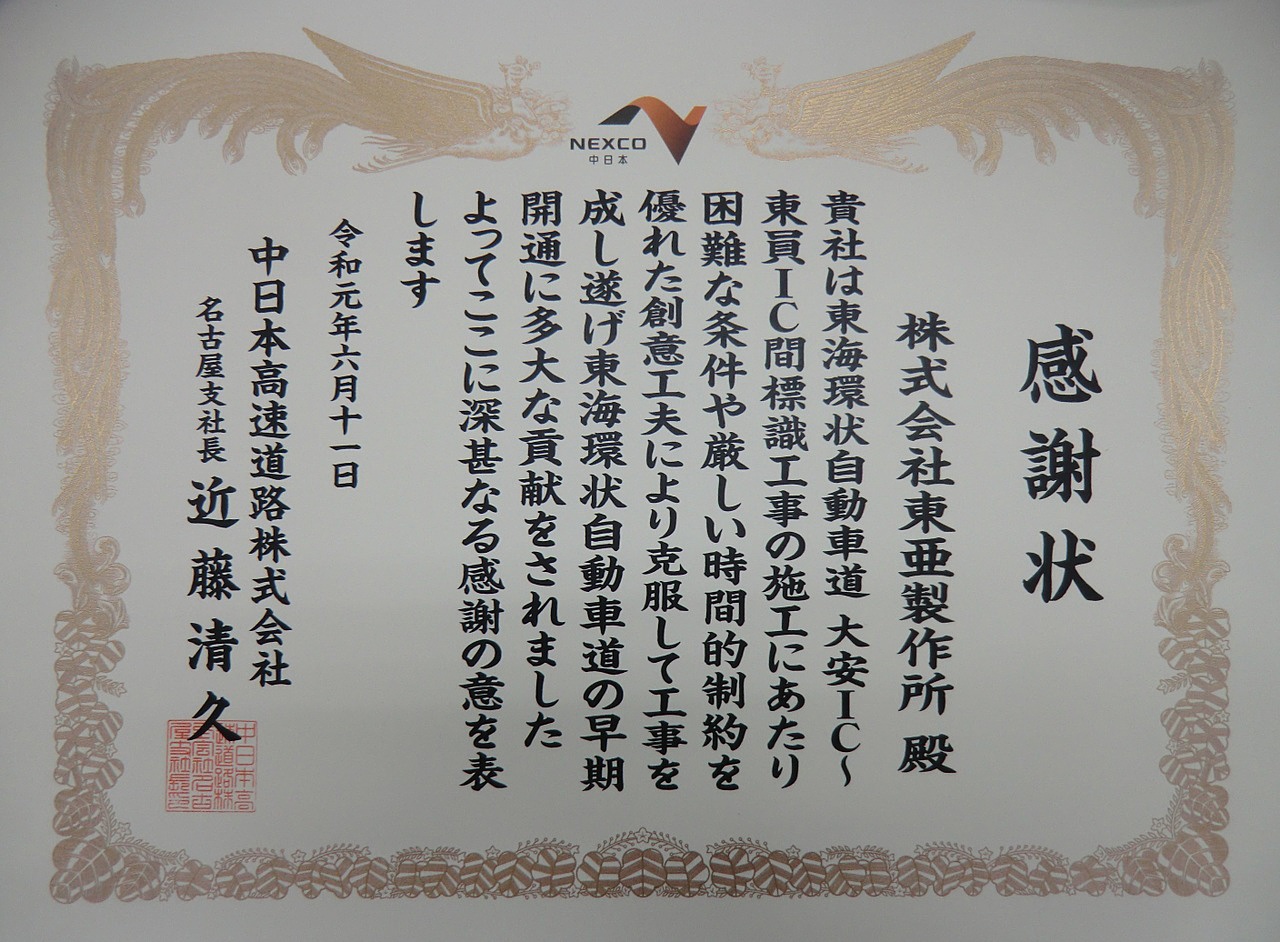 NEXCO
中日本
感謝状
株式会社東亜製作所 殿
貴社は東海環状自動車道 大安IC～
東員IC間標識工事の施工にあたり
困難な条件や厳しい時間的制約を
優れた創意工夫により克服して工事を
成し遂げ東海環状自動車道の早期
開通に多大な貢献をされました
よってここに深甚なる感謝の意を表
します
令和元年六月十一日
中日本高速道路株式会社
名古屋支社長 近藤清久
中日本高
速道路株
式会社名古
屋支社長印